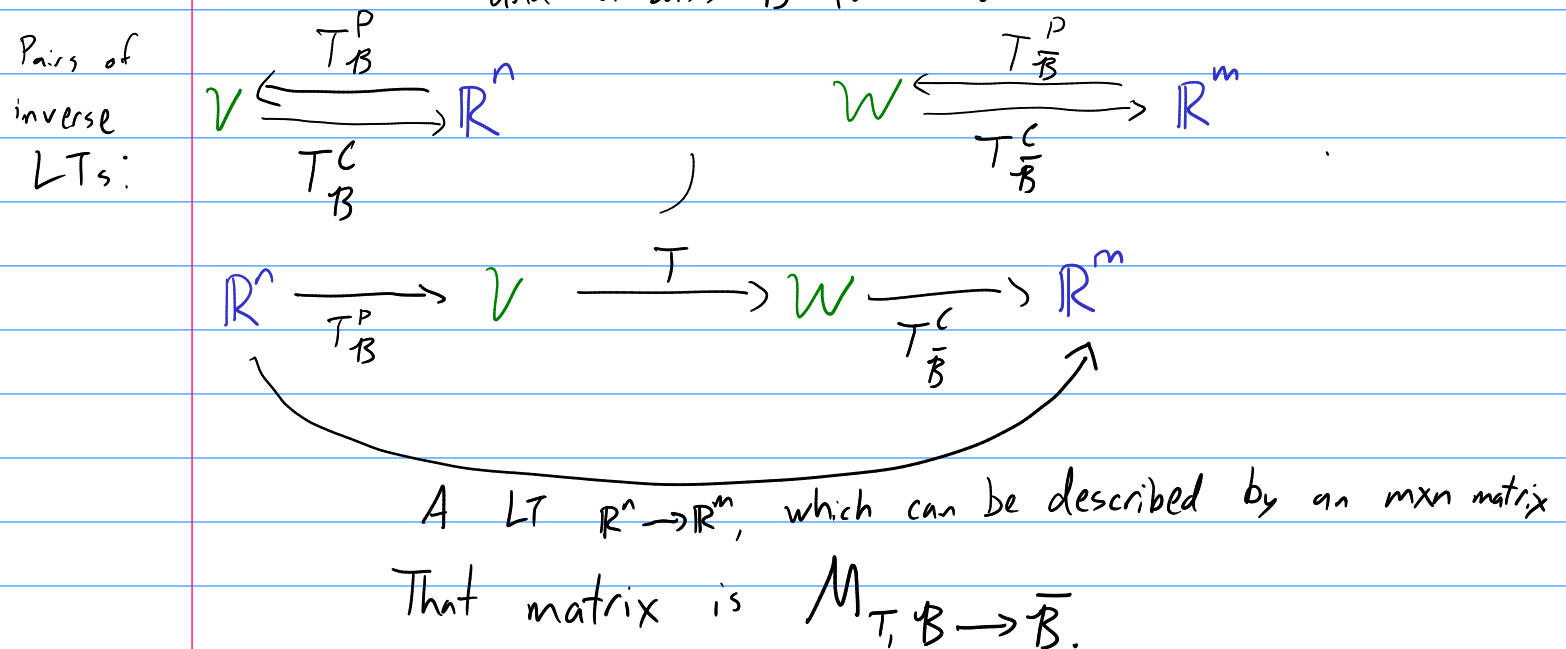 Pairs of inverse LTs:
V ⇄ ℝⁿ T_B^P T_B^C
W ⇄ ℝᵐ T_B̄^P T_B̄^C
ℝⁿ → V → W → ℝᵐ
T_B^P T T_B̄^C
A LT ℝⁿ→ℝᵐ, which can be described by an mxn matrix
That matrix is M_{T, B→B̄}.